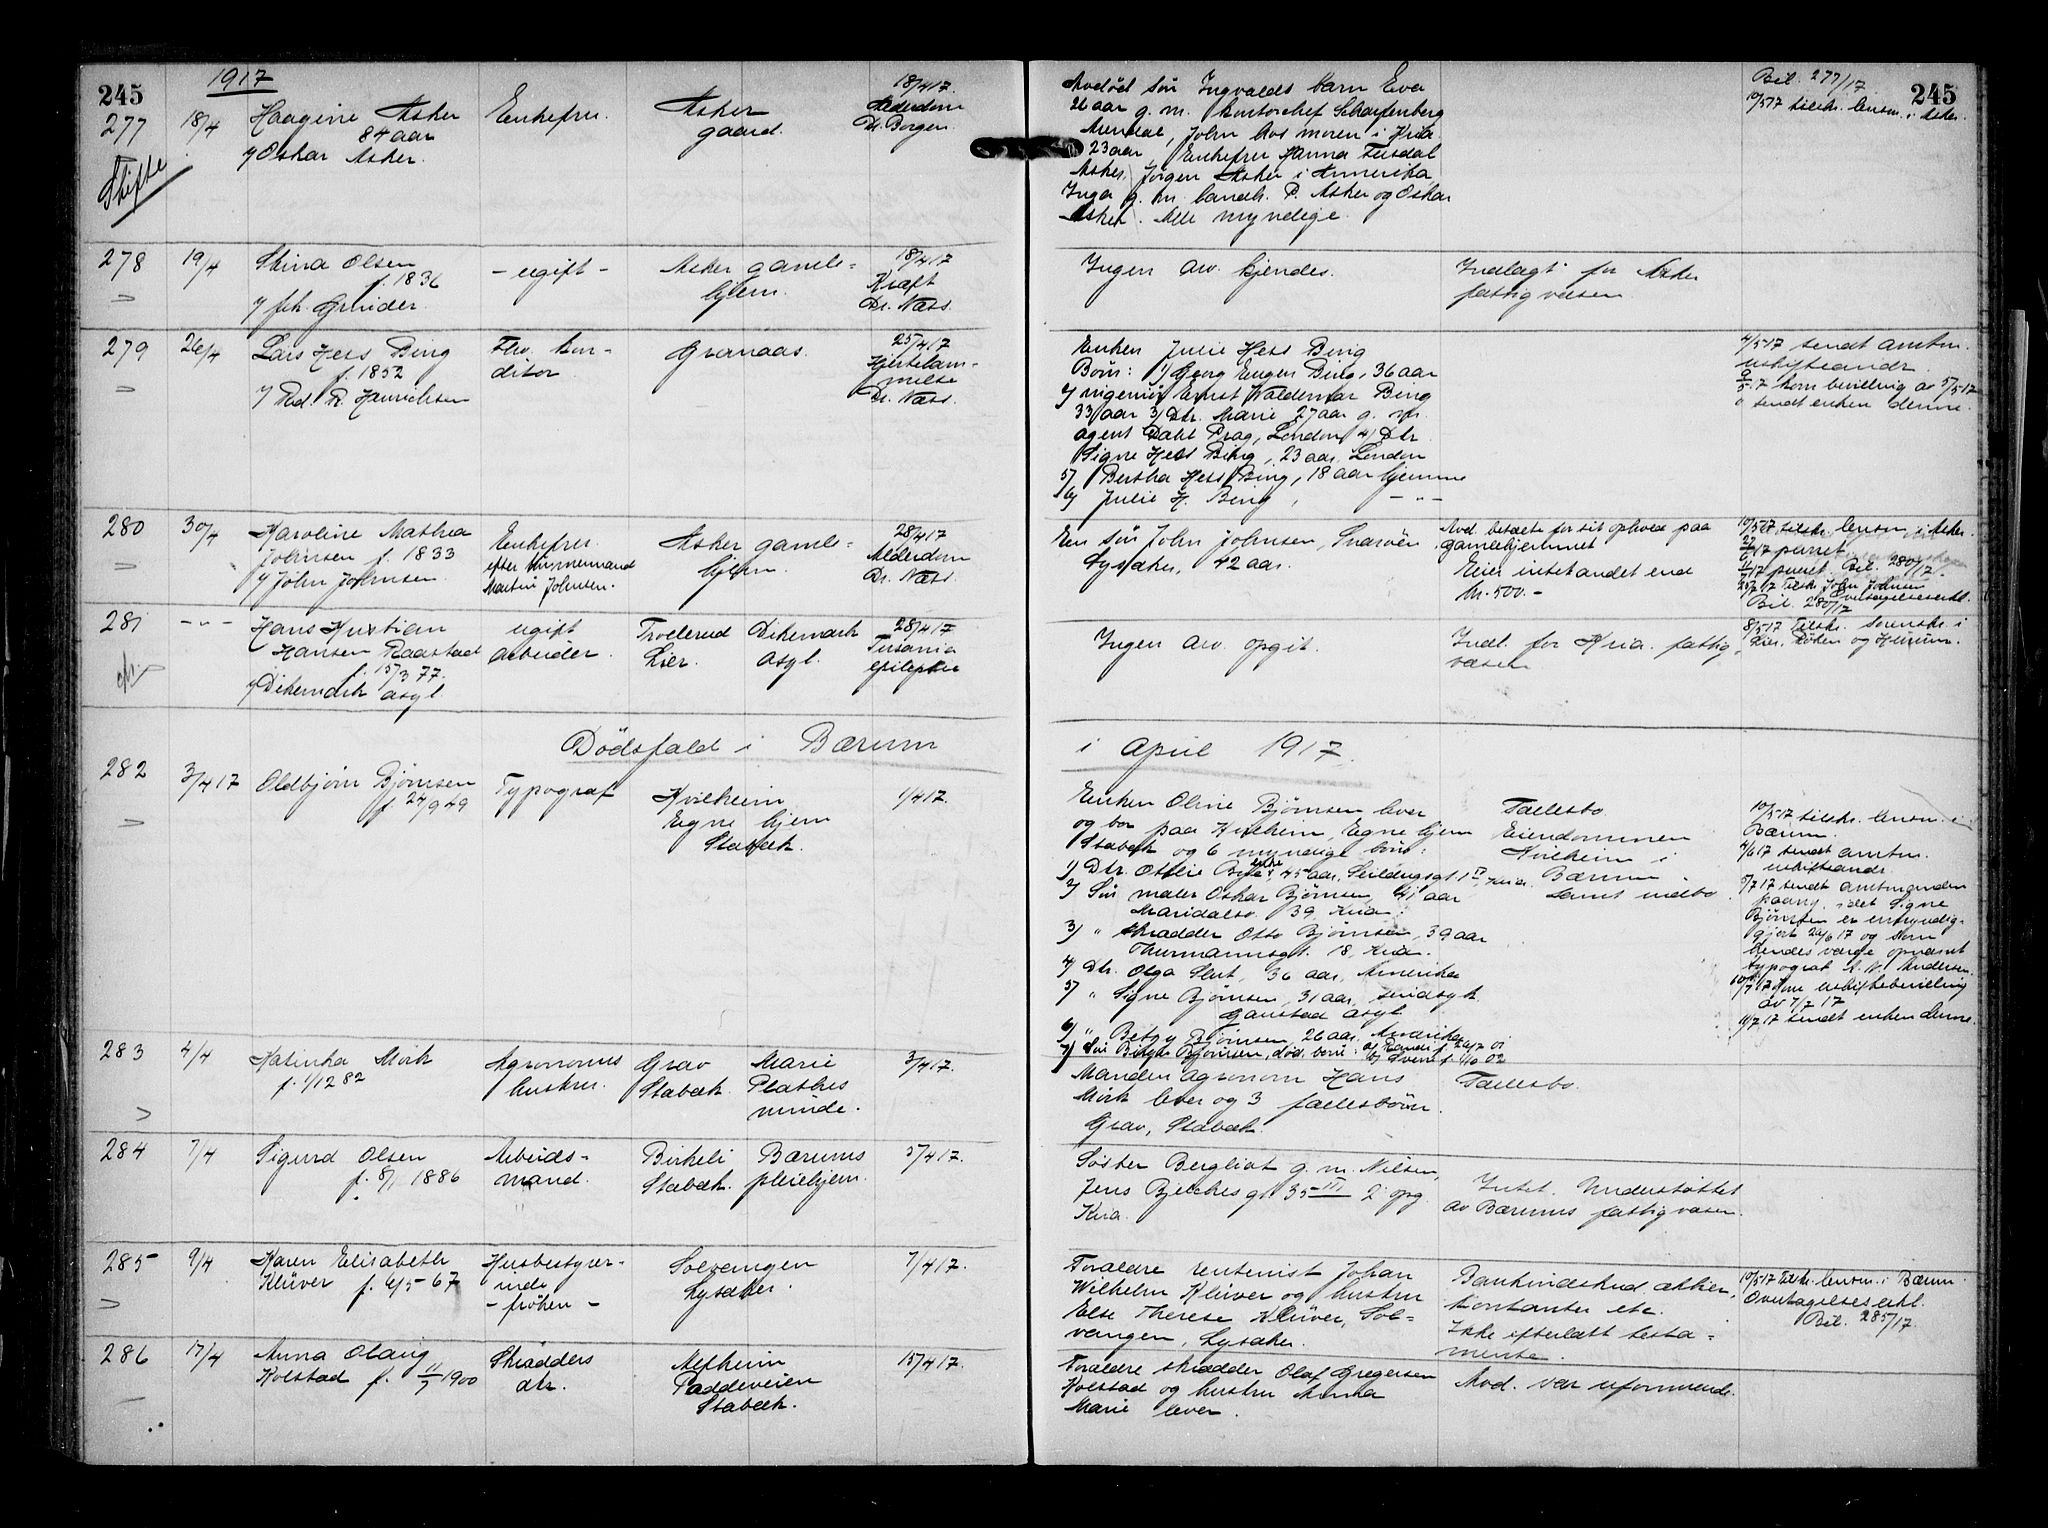 245
1917
277
18/4
Haagine Asker
84 aar
v/ Oskar Asker.
Skifte
Enkefru.
Asker
gaard.
18/4 17.
Alderdom
Dr. Borgen.
Avdød søn Ingvalds barn Eva
26 aar g. m. kontorchef Scharfenberg
Mundal, John hos moren i Kria
23 aar, Enkefru Hanna
Asker, Jørgen Asker i Amerika
Inga g. m. landh. P. Asker og Oskar
Asker. Alle myndige.
Bil. 277/17.
10/5 17 tilskr. lensm. i Asker.
245
278
19/4
Stina Olsen
f. 1836
v/ frk. Grinder.
- ugift -
Asker gamle-
hjem.
18/4 17
Kræft
Dr. Næss.
Ingen arv. kjendes.
Indlagt for Asker
fattigvæsen
279
26/4
Lars Hess Bing
f. 1852
v/ Rd. R. Henrichsen
Fhv. kon-
ditor
Granaas.
25/4 17
Hjertelam-
melse
Dr. Næss.
Enken Julie Hess Bing
Børn: 1/ Georg Eugen Bing, 36 aar
2/ ingeniør Ernst Waldemar Bing
33 aar 3/ Dtr. Marie 27 aar g. m.
agent Dahl Prag, London 4/ Dtr
Signe Hess Bing, 23 aar, London
5/ Bertha Hess Bing, 18 aar hjemme
6/ Julie H. Bing, - " -
4/5 17 sendt amtm.
uskifteandr.
9/5 17 kom bevilling av 5/5 17
" sendt enken denne.
280
30/4
Karoline Mathea
Johnsen f. 1833
v/ John Johnsen.
Enkefru
efter tømmermand
Martin Johnsen.
Asker gamle-
hjem.
28/4 17
Alderdom
Dr. Næss.
En søn John Johnsen, Snarøen
Lysaker, 42 aar.
Avd. betalte for sit ophold paa
gamlehjemmet
Eier indestaaende end
kr. 500. -
10/5 17 tilskr. lensm. i Asker.
27/6 17 purret
11/7 17 purret. Bil. 280/17.
25/7 17 Tilskr. John Johnsen
Overtagelseserkl.
Bil. 280/17
281
- " -
Hans Kristian
Hansen Raastad
f. 15/3 77.
v/ Dikemark asyl
ugift
arbeider.
Trollerud
Lier.
Dikemark
asyl.
28/4 17
epilepsi
Ingen arv. opgit.
Indl. for Kria. fattig-
væsen
8/5 17 Tilskr. sorenskr. i
Lier, Røken og Hurum.
Dødsfald i Bærum
i april 1917.
282
3/4 17
Oldbjørn Bjørnsen
f. 24/9 49
Typograf
Hvilheim
Egne hjem
Stabæk.
1/4 17.
Enken Oline Bjørnsen lever
og bor paa Hvilheim, Egne hjem
Stabæk og 6 myndige børn:
1) Dtr. Ottilie Bye, enke, 45 aar, Skildugsgt. 1 IV, Kria.
2) Søn maler Oskar Bjørnsen, 41 aar
Maridalsv. 39, Kria.
3) " skrædder Otto Bjørnsen, 39 aar
Thurmannsgt. 18, Kria.
4) Dtr. Olga, 36 aar, Amerika
5) " Signe Bjørnsen, 31 aar, sindsyk
Gaustad asyl
6) " Betzy Bjørnsen, 26 aar, Amerika
7) Søn Birger Bjørnsen, død, børn: a/ Randi f. 26/7 01
b/ Sverre f. 1/10 02
Fællesbo
Eiendommen
Hvilheim i
Bærum
samt indbo.
10/5 17 tilskr. lensm. i
Bærum.
4/6 17 sendt amtm.
uskifteandr.
5/7 17 sendt amtmanden
paany, idet Signe
Bjørnsen er umyndig-
gjort 26/6 17 og som
hendes værge opnævnt
typograf A. N. Andersen.
10/7 17 kom uskiftebevilling
av 7/7 17
11/7 17 sendt enken denne.
283
4/4
Katinka Mørk
f. 1/12 82
Agronoms
hustru.
Grav
Stabæk.
Marie
Plathes
minde.
3/4 17.
Manden agronom Hans
Mørk lever og 3 fællesbørn.
Grav, Stabæk.
Fællesbo.
284
7/4
Sigurd Olsen
f. 8/1 1886
Arbeids-
mand.
Birkeli
Stabæk.
Bærums
pleiehjem.
5/4 17.
Søster Bergliot g. m. Nilsen,
Jens Bjelkes gt. 35 III 2 opg.
Kria.
Intet. Understøttet
av Bærums fattigvæsen.
285
9/4
Karen Elisabeth
Klüver f. 6/5 - 67
Husbestyrer-
inde
- frøken -
Solvangen
Lysaker.
7/4 17.
Forældre rentenist Johan
Wilhelm Klüver og hustru
Else Therese Klüver, Sol-
vangen, Lysaker.
Bankindskud, aktier,
kontanter etc.
Ikke efterlatt testa-
mente.
10/5 17 Tilskr. lensm. i Bærum.
Overtagelseserkl.
Bil. 285/17
286
17/4
Anna Olaug
Kolstad f. 11/7 1900
Skrædders
dtr.
Alfheim
Paddeveien
Stabæk.
15/4 17.
Forældre skrædder Olaf Gregersen
Kolstad og hustru Anna
Marie lever.
Avd. var uformuende.